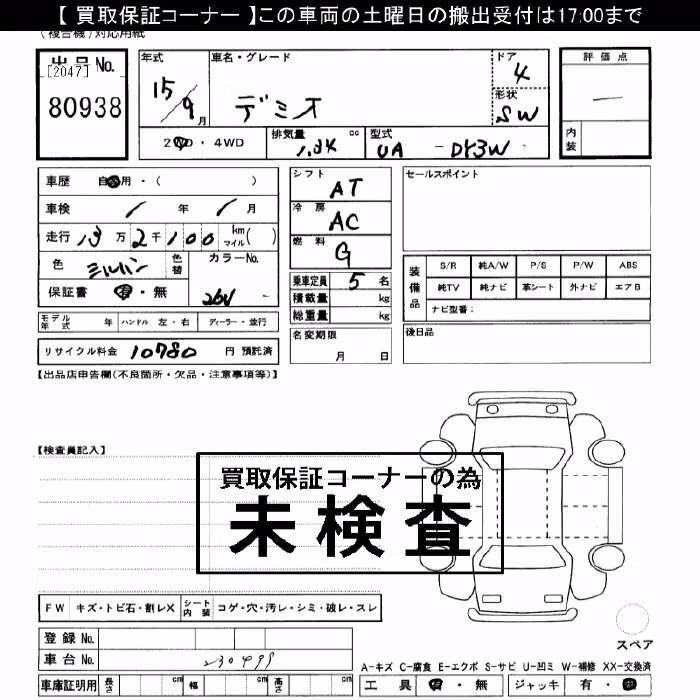 【 買取保証コーナー 】この車両の土曜日の搬出受付は17:00まで
(複合機)対応用紙
出品No.
[2047]
80938
年式
15/9月
車名・グレード
デミオ
ドア
4
形状
SW
2WD・4WD
排気量
cc
型式
UA - DY3W
評価点
内装
車歴 自家用・( )
車検 / 年 / 月
走行 13万2千100 km マイル( )
色 シルバー 色替
カラーNo.
26V
保証書 有・無
シフト
AT
冷房
AC
燃料
G
乗車定員 5 名
積載量 kg
総重量 kg
名変期限
月 日
セールスポイント
装備品
S/R 純A/W P/S P/W ABS
純TV 純ナビ 革シート 外ナビ エアB
ナビ型番:
後日品
モデル年式 年 ハンドル 左・右 ディーラー・並行
リサイクル料金 10780 円 預託済
【出品店申告欄(不良箇所・欠品・注意事項等)】
【検査員記入】
買取保証コーナーの為
未検査
FW キズ・トビ石・割レX シート内装 コゲ・穴・汚レ・シミ・破レ・スレ
登録 No.
車台 No. 230499
車庫証明用 長さ cm 幅 cm 高さ cm
スペア
A-キズ C-腐食 E-エクボ S-サビ U-凹ミ W-補修 XX-交換済
工具 有・無 ジャッキ 有・無